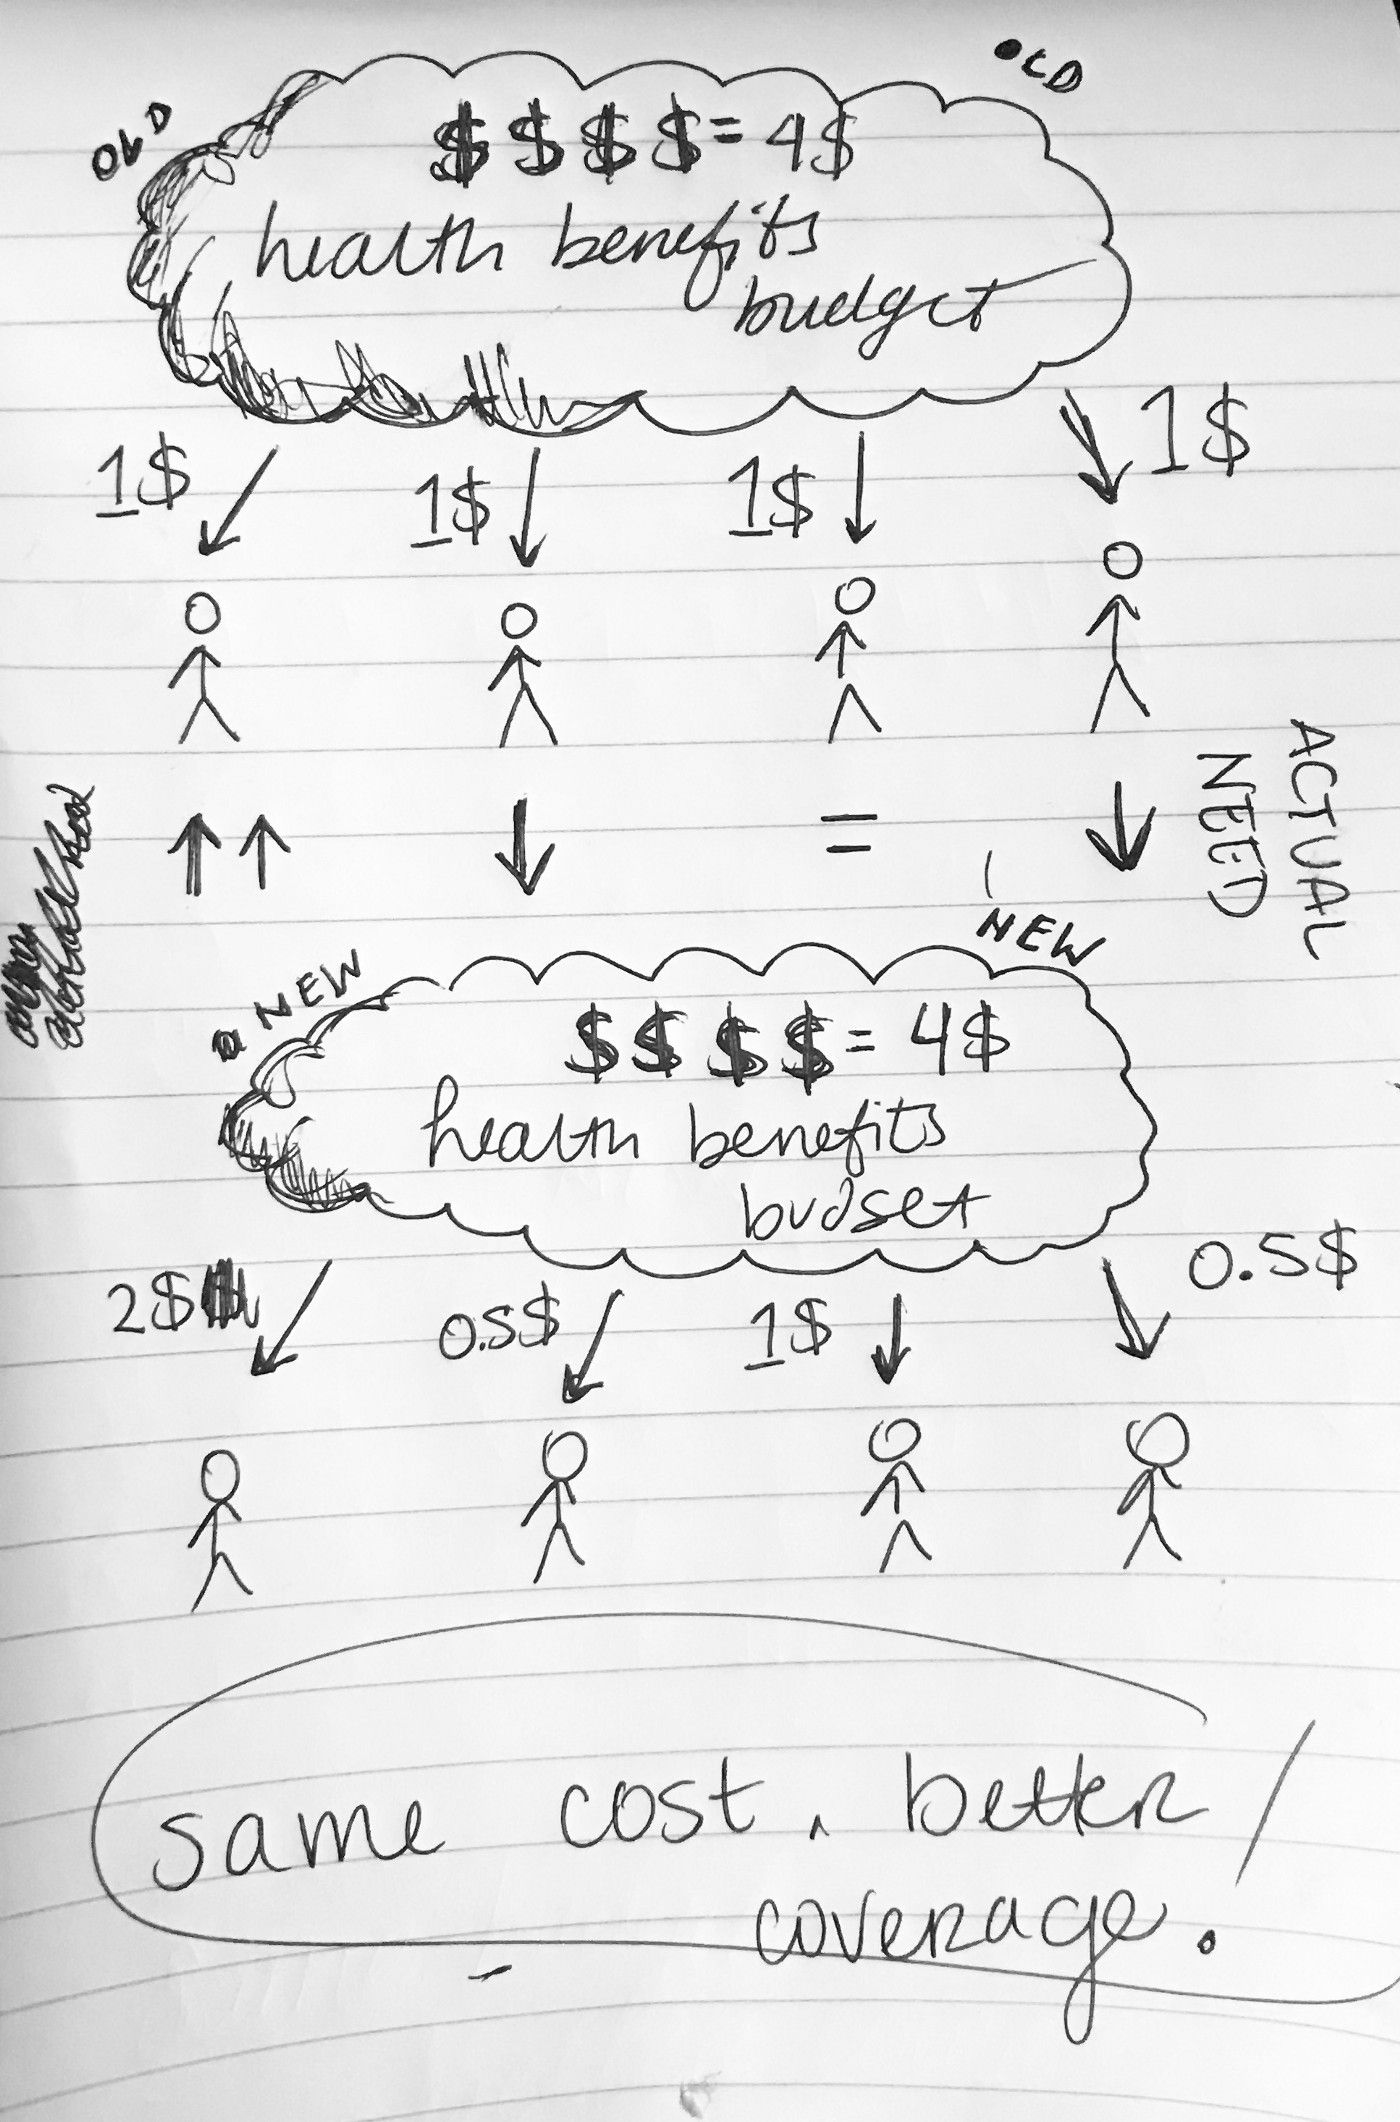 OLD
OLD
$ $ $ $ = 4$
health benefits
budget
1$
1$
1$
1$
ACTUAL
NEED
↑↑ ↓ = ↓
NEW
NEW
$ $ $ $ = 4$
health benefits
budget
2$
0.5$
1$
0.5$
same cost, better
coverage!